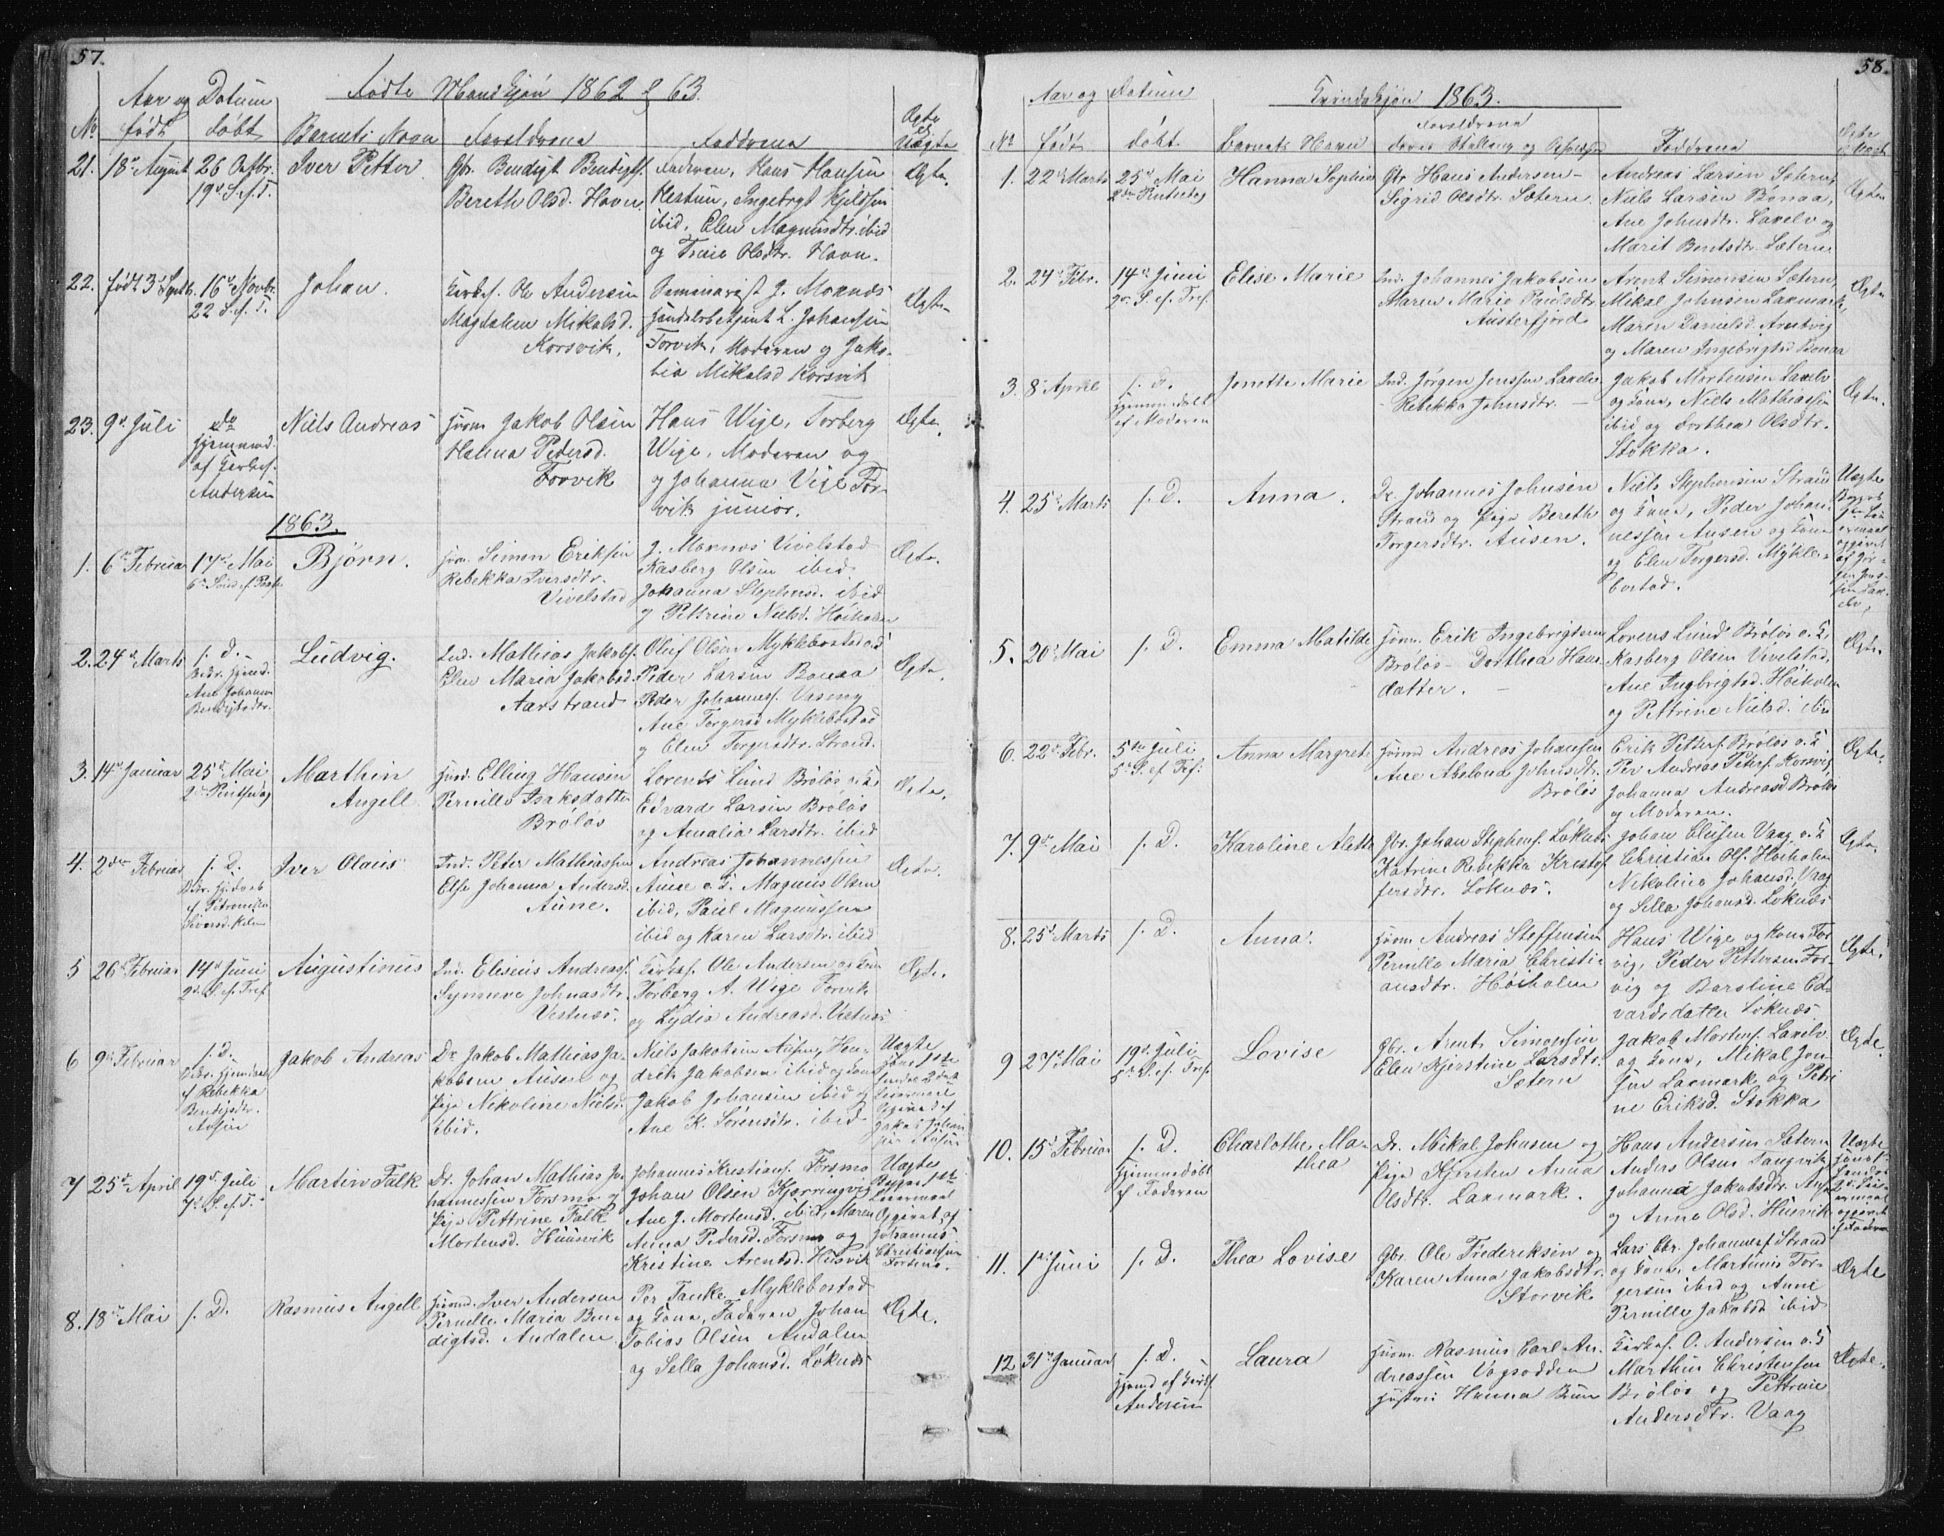 57.
Fødte Mandkjøn 1862 & 63.
Aar og Datum
No født døbt Barnets Navn Forældrene Faddrene Ægte el. Uægte
21. 18de August 26 Octbr. 19de S. ef. T.
Iver Petter
Gbr. Bendigt Bendigts.
Bereth Olsd. Haven.
Faderen, Hans Hansen
Ingebrigt
ibid, Elen Magnusdtr. ibid
og Olsdtr. Havn.
Ægte.
22. født 3 Septb. 16de Novbr. 22 S. ef. T.
Johan.
Kirkes. Ole Andersen
Magdalena Mikalsd.
Korsvik.
Seminarist J. Moxnæs
L. Johansen
Forvik, Moderen og Jako-
bia Mikalsd Korsvik
Ægte
23. 9de Juli do
hjemmed.
af Kirkes.
Andersen
Niels Andreas
Huusm. Jakob Olsen
Hanna Pedersd.
Forvik
Hans Wige, Torberg
Wige, Moderen og
og Johanna Vige For-
vik junior.
Ægte.
1863.
1. 6te Februar 17de Mai
Bjørn.
Huusm. Simon Eriksen
Rebekka Iversdtr.
Vivelstad
J. Moxnæs Vivelstad
Kasberg Olsen ibid.
Johanna Stephensd. ibid
og Pettrine Nielsd. Høiholm
Ægte.
2. 24de Marts s. D.
Bedr. hjemd.
Ane Johanna
Bendigtsdtr.
Ludvig.
Ind. Mathias Jakobs.
Elen Maria Jakobsd.
Aarstrand
Oluf Olsen Myklebostad
Peder Larsen Bonaa
Peder Johannes. Vesing
Ane Torgersd Myklebostad
og Elen Torgersdtr. Strand.
Ægte.
3. 14de Januar 25de Mai
2den Pintsedag
Marthin
Angell
Huusm. Elling Hansen
Pernille Isaksdatter
Brøløs
Lorents Lund Brøløs o. K.
Edvard Larsen Brøløs
og Amalia Larsdtr. ibid
Ægte.
4. 2den Februar s. D.
Iver Olaus
Ind. Peter Mathiassen
Else Johanna Andersd.
Aune.
Andreas Johannessen
Aune o. K. Magnus Olsen
ibid, Paul Magnussen
ibid og Karen Larsdtr. ibid
Ægte.
5 26de Februar 14de Juni
2de S. ef. Tref.
Augustinus
Ind. Eliseus Andreas.
Synnøve Johnasdtr.
Vestnæs.
Kirkes. Ole Andersen og Kone
Torberg A. Wige Forvik
og Lydia Andreasd. Vistnæs
Ægte.
6 9de Februar s. D.
Bedr. hjemdøbt
af Rebekka
Bendigsdtr.
Ausen
Jakob Andreas
Dr. Jakob Mathias Ja-
kobsen Ausen og
Pige Nekoline Nielsd.
ibid.
Niels Jakobsen Ausen, Hen-
drik Jakobsen ibid og Kone
Jakob Johansen ibid og
Ane K. Sørensdtr. ibid
Uægte
hans 1ste
hendes 2det
Leiermaal
Opgivet af
Jakob Johan-
sen Ausen
7 25de April 19de Juli
7de S. ef. T.
Martin Falk
Dr. Johan Mathias Jo-
hannessen Forsmo og
Pige Pettrine Falk
Mortensd. Huusvik
Johannes Kristians. Forsmo
Johan Olsen Kjærringvig
Ane J. Mortensd. ibid, Maren
Anna Pedersd. Forsmo og
Kristine Arentsd. Husvik
Uægte
Begges 1ste
Leiermaal
Opgivet af
Johannes
Christiansen
Forsmo.
8. 18de Mai s. D.
Rasmus Angell
Huusm. Iver Andersen
Pernille Maria Ben-
digtsd. Andalen
Per Tanke Myklebostad
og Kone, Faderen, Johan
Tobias Olsen Andalen
og Sella Johansd. Løknæs
Ægte.
58.
Kvindekjøn 1863.
Aar og Datum
No født døbt Barnets Navn Forældrene deres Stilling og Opholdssted Faddrene Ægte el. Uægte
1. 22de Marts 25de Mai
2den Pintsedag
Hanna Sophia
Gbr. Hans Andersen -
Sigrid Olsdtr. Sætern.
Andreas Larsen Sætern
Niels Larsen Bonaa,
Ane Johnsdtr. Laxelv og
Marit Berntsdtr. Sætern
Ægte
2. 24de Febr. 14de Juni
2de S. ef. Tref.
Elise Marie
Ind. Johannes Jakobsen
Maren Maria Paulsdtr
Austerfjord
Arent Simonsen Sætern,
Mikal Johnsen Laxmark,
Maren Danielsd. Arntvig
og Maren Ingebrigtsd Bonaa
Ægte
3. 8de April s. D.
hjemmedøbt
af Moderen
Jenette Marie
Ind. Jørgen Jenssen Laxelv
- Rebekka Johnsdtr. -
Jakob Mortensen Laxelv
og Kone, Niels Mathiassen
ibid og Dorthea Olsdtr.
Stokka.
Ægte.
4. 25de Marts s. D.
Anna.
Dr. Johannes Johnsen
Strand og Pige Bereth
Torgersdtr. Ausen.
Niels Stephensen Strand
og Kone, Peder Johan-
nessen Ausen og Kone
og Elen Torgersd. Mykle-
bostad.
Uægte
5. 20de Mai s. D.
Emma Matilde
Huusm. Erik Ingebrigtsen
Brøløs - Dorthea Hans-
datter. -
Lorens Lund Brøløs o. K.
Kasberg Olsen Vivelstad,
Ane Ingbrigtsd. Høiholm
og Pettrine Nielsd. ibid
Ægte.
6. 22de Febr. 5te Juli
5te S. ef. Tref.
Anna Margrete
Huusm. Andreas Johansen
Ane Abelona Johnsdtr.
Brøløs
Erik Petters. Brøløs o. K.
Per Andreas Peters. Korsvig,
Johanna Andreasd Brøløs
og Moderen.
Ægte.
7. 9de Mai s. D.
Karoline Aletta
Gbr. Johan Stephens. Løknæs
Katrine Rebekka Kristof-
fersdtr. Løknæs.
Johan Eliasen Vaag o. K
Christian Ols. Høiholm
Nikoline Johansd. Vaag
og Sella Johansd. Løknæs
Ægte.
8. 25de Marts s. D.
Anna.
Huusm. Andreas Steffensen
Pernille Maria Christi-
ansdtr. Høiholm
Hans Wige og Kone For-
vig, Peder Pettersen For-
vig og Barstine Ed-
vardsdatter Løknæs.
Ægte.
9 27de Mai 19de Juli
Lovise
Gbr. Arnt Simonsen
Elen Kjerstine Larsdtr.
Sætern
Jakob Mortens. Laxelv
og Kone, Mikal Jon-
sen Laxmark og Petri-
ne Eriksd. Stokka
Ægte.
10. 15de Februar s. D.
hjemmedøbt
af Faderen
Charlothe Ma-
thea
Dr. Mikal Johnsen og
Pige Kjersten Anna
Olsdtr. Laxmark.
Hans Andersen Sætern
Anders Olsen Tangvik
Johanna Jakobsdtr. Ausen
og Anne Olsd. Husvik
Uægte
11. 1ste Juni s. D.
Thea Lovise
Gbr. Ole Frederiksen og
Karen Anna Jakobsdtr.
Storvik
Lars Chr. Johanness. Strand
og Kone, Martinus Tor-
gersen ibid og Anne
Pernille Jakobsd ibid
Ægte
12 31te Januar s. D.
hjemd af Kirkes.
Andersen
Laura
Huusm. Rasmus Carl An-
dreassen Vagsodden
Hustru Hanna Bruun
Kirkes. O. Andersen o. K
Marthin Christensen
Brøløs og Pettrine
Andersdtr. Vaag
Ægte.